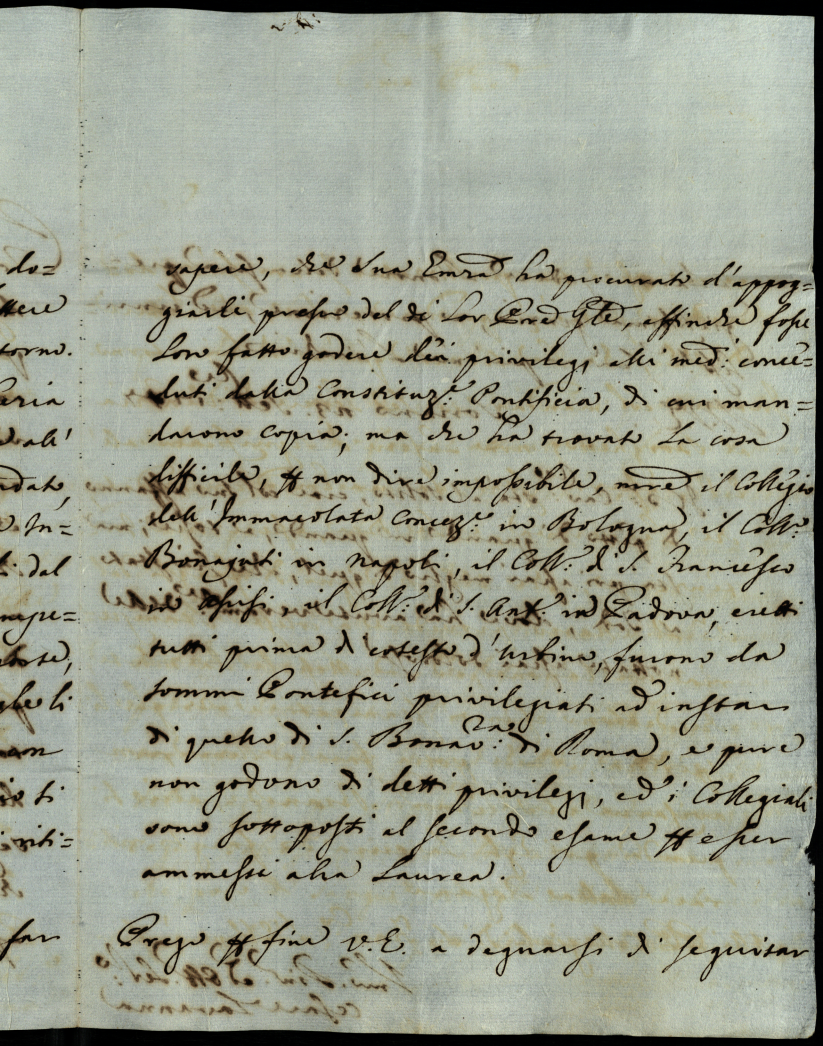 do=
ttere
torno.
eria
e all'
ndato,
e In=
dal
mepe=
li
con
si
riti=
far
sapere, che Sua Emza ha procurato d'appog=
giarli presso del di Lor Pred. Gle, affinche fosse
Loro fatto godere dei privilegj alli med: conce=
duti dalla Constituze: Pontificia, di cui man=
darono copia; ma che ha trovato la cosa
difficile, p non dire impossibile, mentre il Collegio
dell'Immacolata Conceze: in Bologna, il Coll:
Bonajuti in Napoli, il Coll: di S. Francesco
in Assisi, il Coll: di S. Anto: in Padova, eretti
tutti prima di cotesto d'Urbino, furono da
sommi Pontefici privilegiati ad instar
di quello di S. Bonavra: di Roma, e pure
non godono di detti privilegj, ed i Collegiali
sono sottoposti al secondo esame p esser
ammessi alla Laurea.
Prego p fine V.E. a degnarsi di seguitar